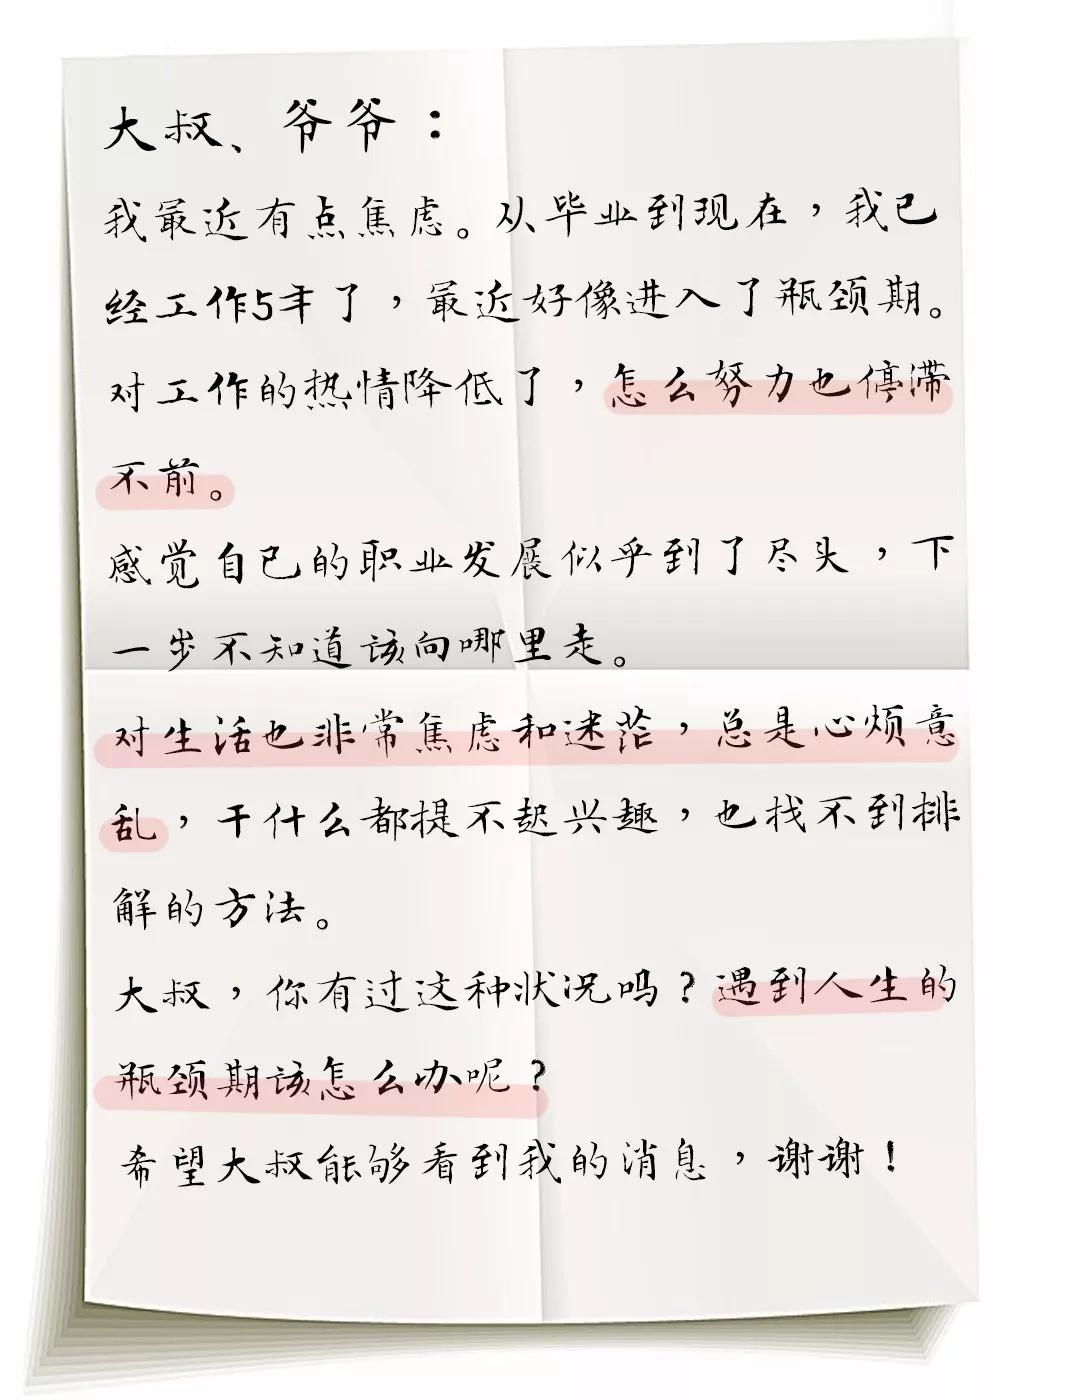 大叔、爷爷：
我最近有点焦虑。从毕业到现在，我已
经工作5年了，最近好像进入了瓶颈期。
对工作的热情降低了，怎么努力也停滞
不前。
感觉自己的职业发展似乎到了尽头，下
一步不知道该向哪里走。
对生活也非常焦虑和迷茫，总是心烦意
乱，干什么都提不起兴趣，也找不到排
解的方法。
大叔，你有过这种状况吗？遇到人生的
瓶颈期该怎么办呢？
希望大叔能够看到我的消息，谢谢！